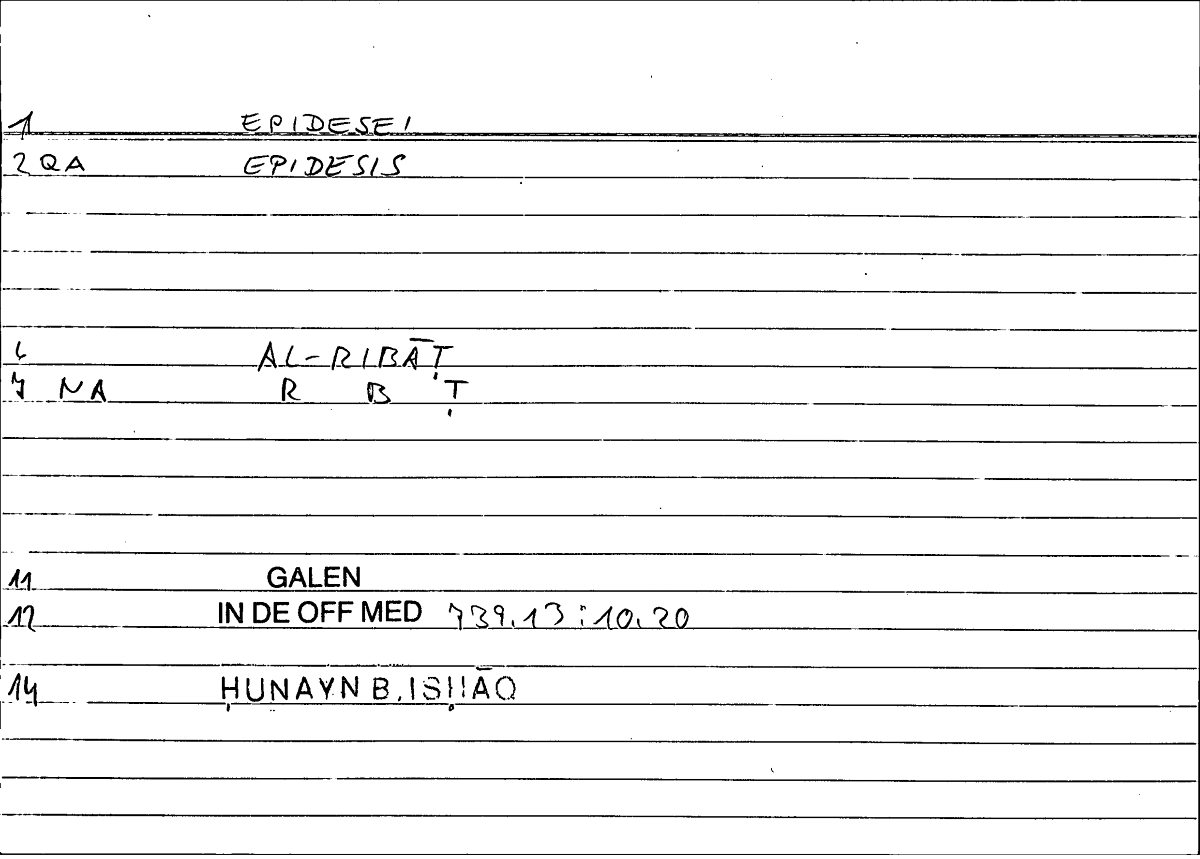 1 EPIDESEI
2 QA EPIDESIS
6 AL-RIBĀṬ
7 NA R B Ṭ
11 GALEN
12 IN DE OFF MED 739.13 : 10.20
14 ḤUNAYN B. ISḤĀQ